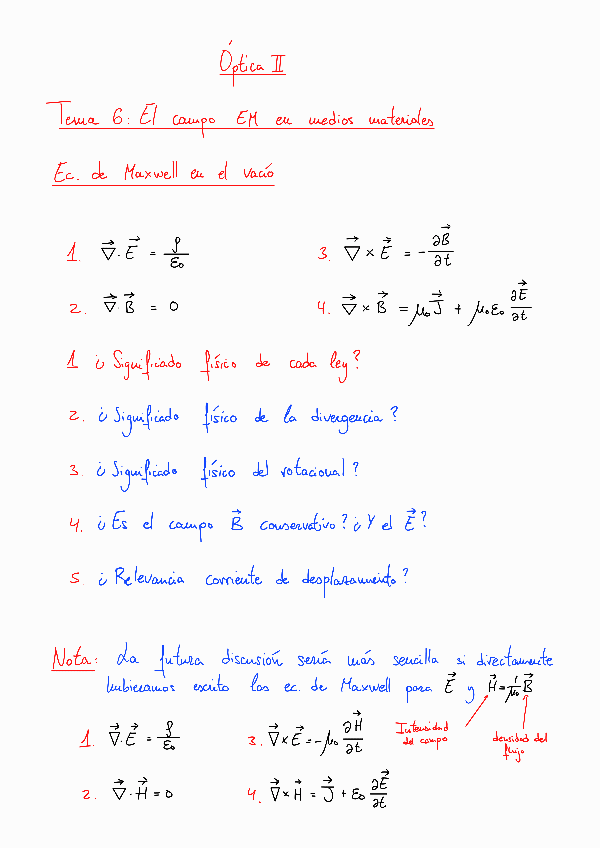 Óptica II
Tema 6: El campo EM en medios materiales
Ec. de Maxwell en el vacío
1. ∇⃗·E⃗ = ρ/ε₀ 3. ∇⃗×E⃗ = -∂B⃗/∂t
2. ∇⃗·B⃗ = 0 4. ∇⃗×B⃗ = μ₀J⃗ + μ₀ε₀ ∂E⃗/∂t
1 ¿Significado físico de cada ley?
2. ¿Significado físico de la divergencia?
3. ¿Significado físico del rotacional?
4. ¿Es el campo B⃗ conservativo? ¿Y el E⃗?
5. ¿Relevancia corriente de desplazamiento?
Nota: La futura discusión sería más sencilla si directamente
hubieramos escrito las ec. de Maxwell para E⃗ y H⃗=1/μ₀ B⃗
Intensidad del campo
densidad del flujo
1. ∇⃗·E⃗ = ρ/ε₀ 3. ∇⃗×E⃗ = -μ₀ ∂H⃗/∂t
2. ∇⃗·H⃗ = 0 4. ∇⃗×H⃗ = J⃗ + ε₀ ∂E⃗/∂t